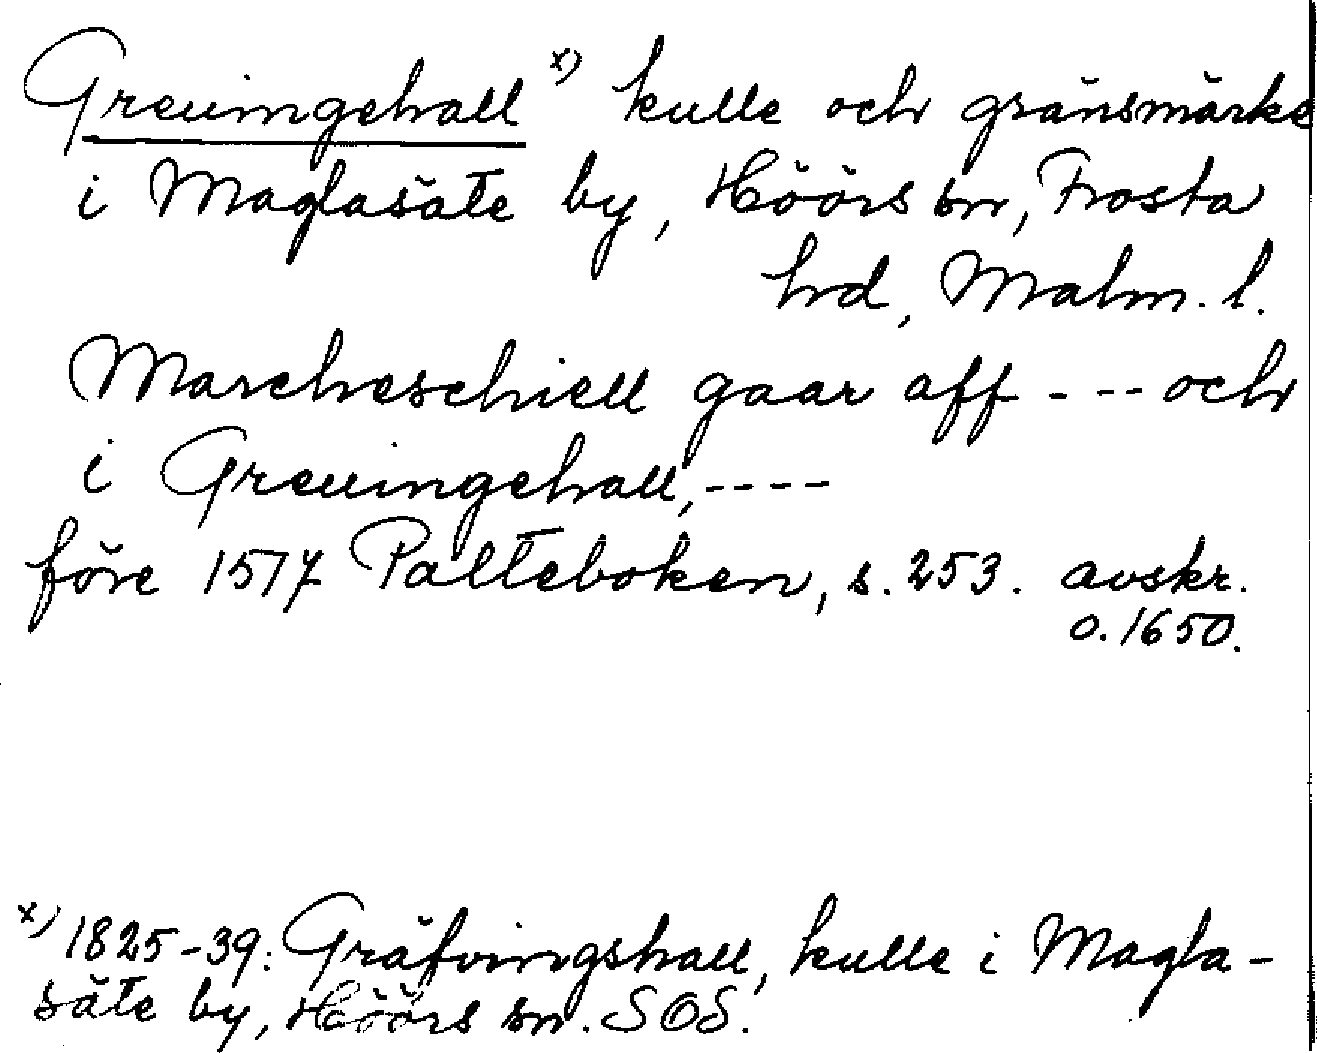 Greuingehall x) kulle och gränsmärke
i Maglasäte by, Höörs sn, Frosta
hd, Malm. l.
Marcheschiell gaar aff - - - och
i Greuingehall, - - - -
före 1517 Palteboken, s. 253. avskr.
o. 1650.
x) 1825-39: Gräfvingshall, kulle i Magla-
säte by, Höörs sn. SOS.